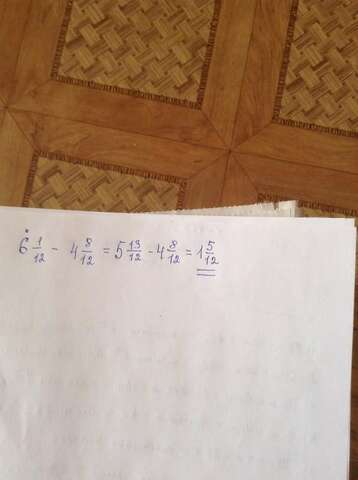 6 1/12 - 4 8/12 = 5 13/12 - 4 8/12 = 1 5/12